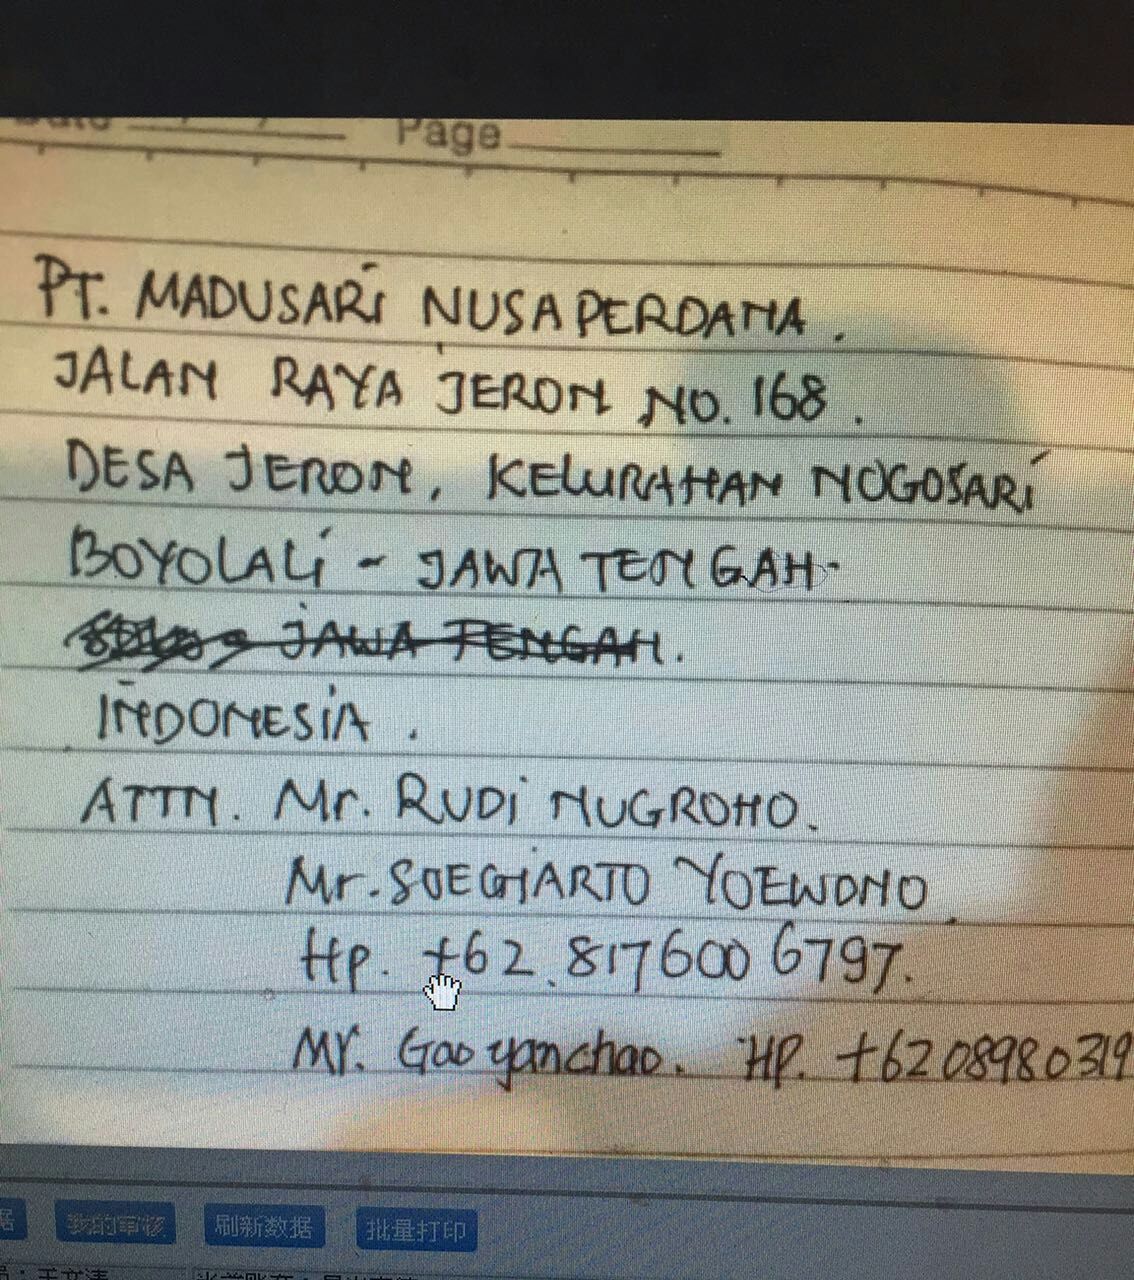 Date Page
PT. MADUSARI NUSAPERDANA.
JALAN RAYA JERON NO. 168.
DESA JERON, KELURAHAN NOGOSARI
BOYOLALI - JAWA TENGAH-
JAWA TENGAH.
INDONESIA.
ATTN. Mr. RUDI NUGROHO.
Mr. SOEGIARTO YOEWONO
HP. +62.817600 6797.
Mr. Gao yanchao. HP. +6208980319
据 我的审核 刷新数据 批量打印